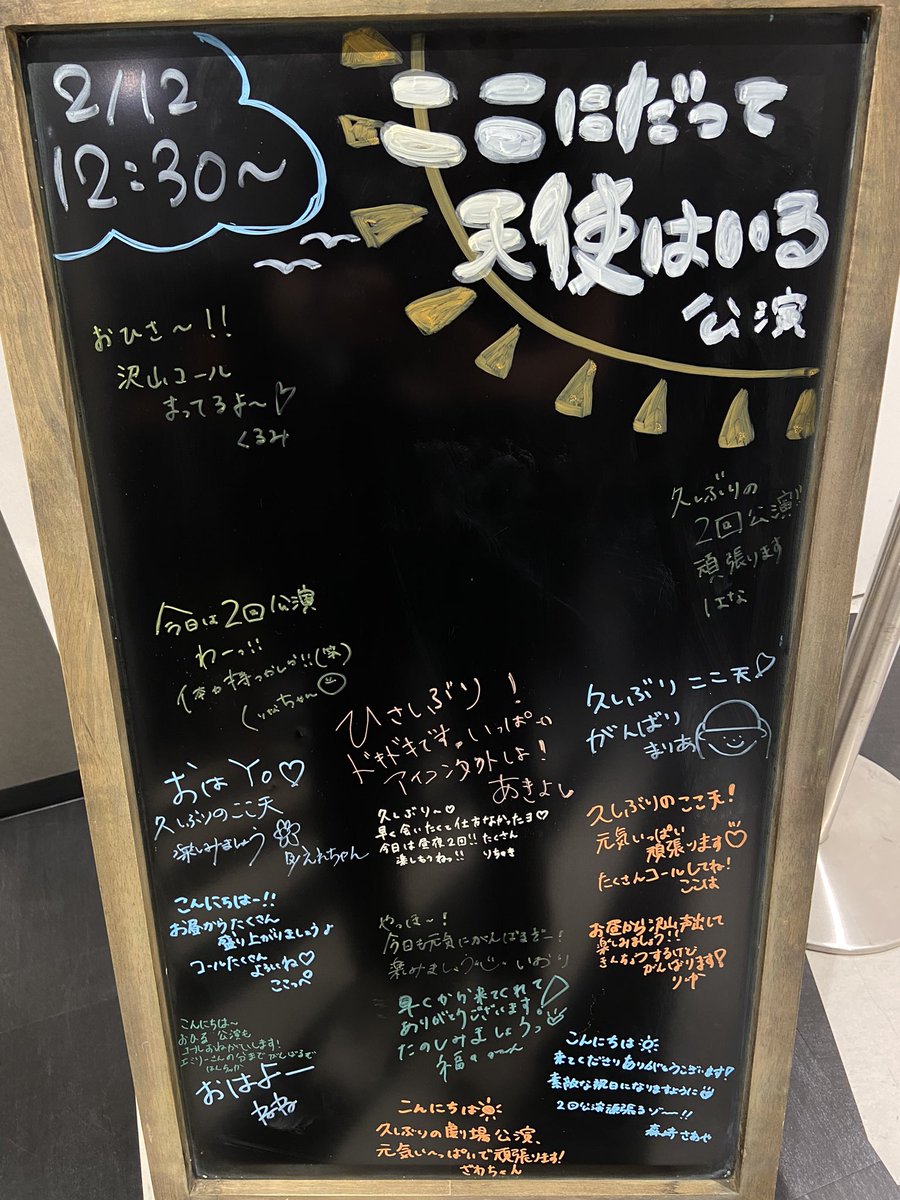 2/12
12:30〜
ここにだって
天使はいる
公演
おひさ〜!!
沢山コール
まってるよ〜♡
くるみ
久しぶりの
2回公演!
頑張ります
はな
今日は2回公演
わーっ!!
体力持つかしら!!(笑)
りなちゃん
ひさしぶり!
ドキドキです。いっぱい
アイコンタクトしよ!
あきよし
久しぶり ここ天♡
がんばり
まりあ
おはYo♡
久しぶりのここ天
楽しみましょう
えれちゃん
久しぶり〜♡
早く会いたくて仕方なかったヨ♡
今日は昼夜2回!!たくさん
楽しもうねっ!!
久しぶりのここ天!
元気いっぱい
頑張ります♡
たくさんコールしてね!
ここは
こんにちは〜!!
お昼からたくさん
盛り上がりましょう♪
コールたくさん
よろしいね♡
ここっぺ
やっほ〜!
今日も元気にがんばるぞー!
楽みましょう いおり
お昼から沢山声出して
楽しみましょう!!
きんちょうするけど
がんばります!
りゆ
早くから来てくれて
ありがとうございます!
たのしみましょうっ
福
こんにちは〜
おひる公演も
コールおねがいします!
エミリーさんの分までがんばるで
おはよー
ねね
こんにちは
来てくださりありがとうございます!
素敵な祝日になりますように
2回公演頑張るゾー!!
森﨑さあや
こんにちは
久しぶりの劇場公演、
元気い〜っぱいで頑張ります!
ざわちゃん